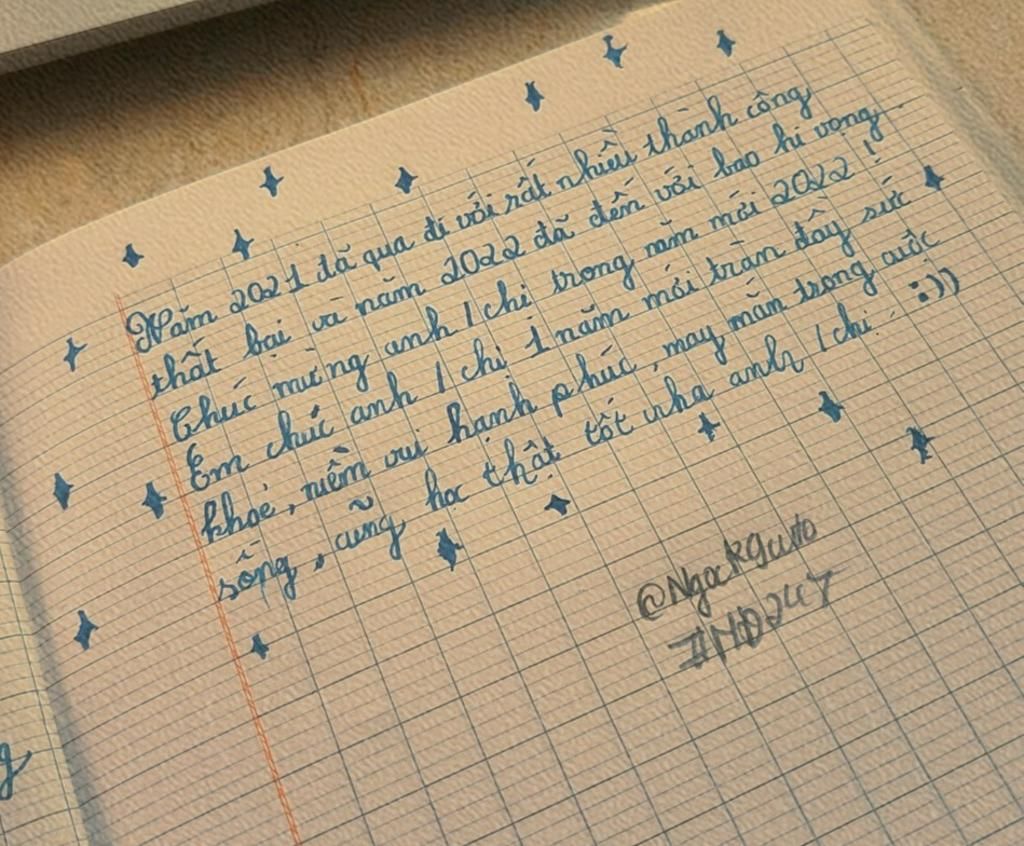 Năm 2021 đã qua đi với rất nhiều thành công
thất bại và năm 2022 đã đến với bao hi vọng
Chúc mừng anh / chị trong năm mới 2022 !
Em chúc anh / chị 1 năm mới tràn đầy sức
khoẻ, niềm vui hạnh phúc, may mắn trong cuộc
sống, cũng học thật tốt nha anh / chị. :))